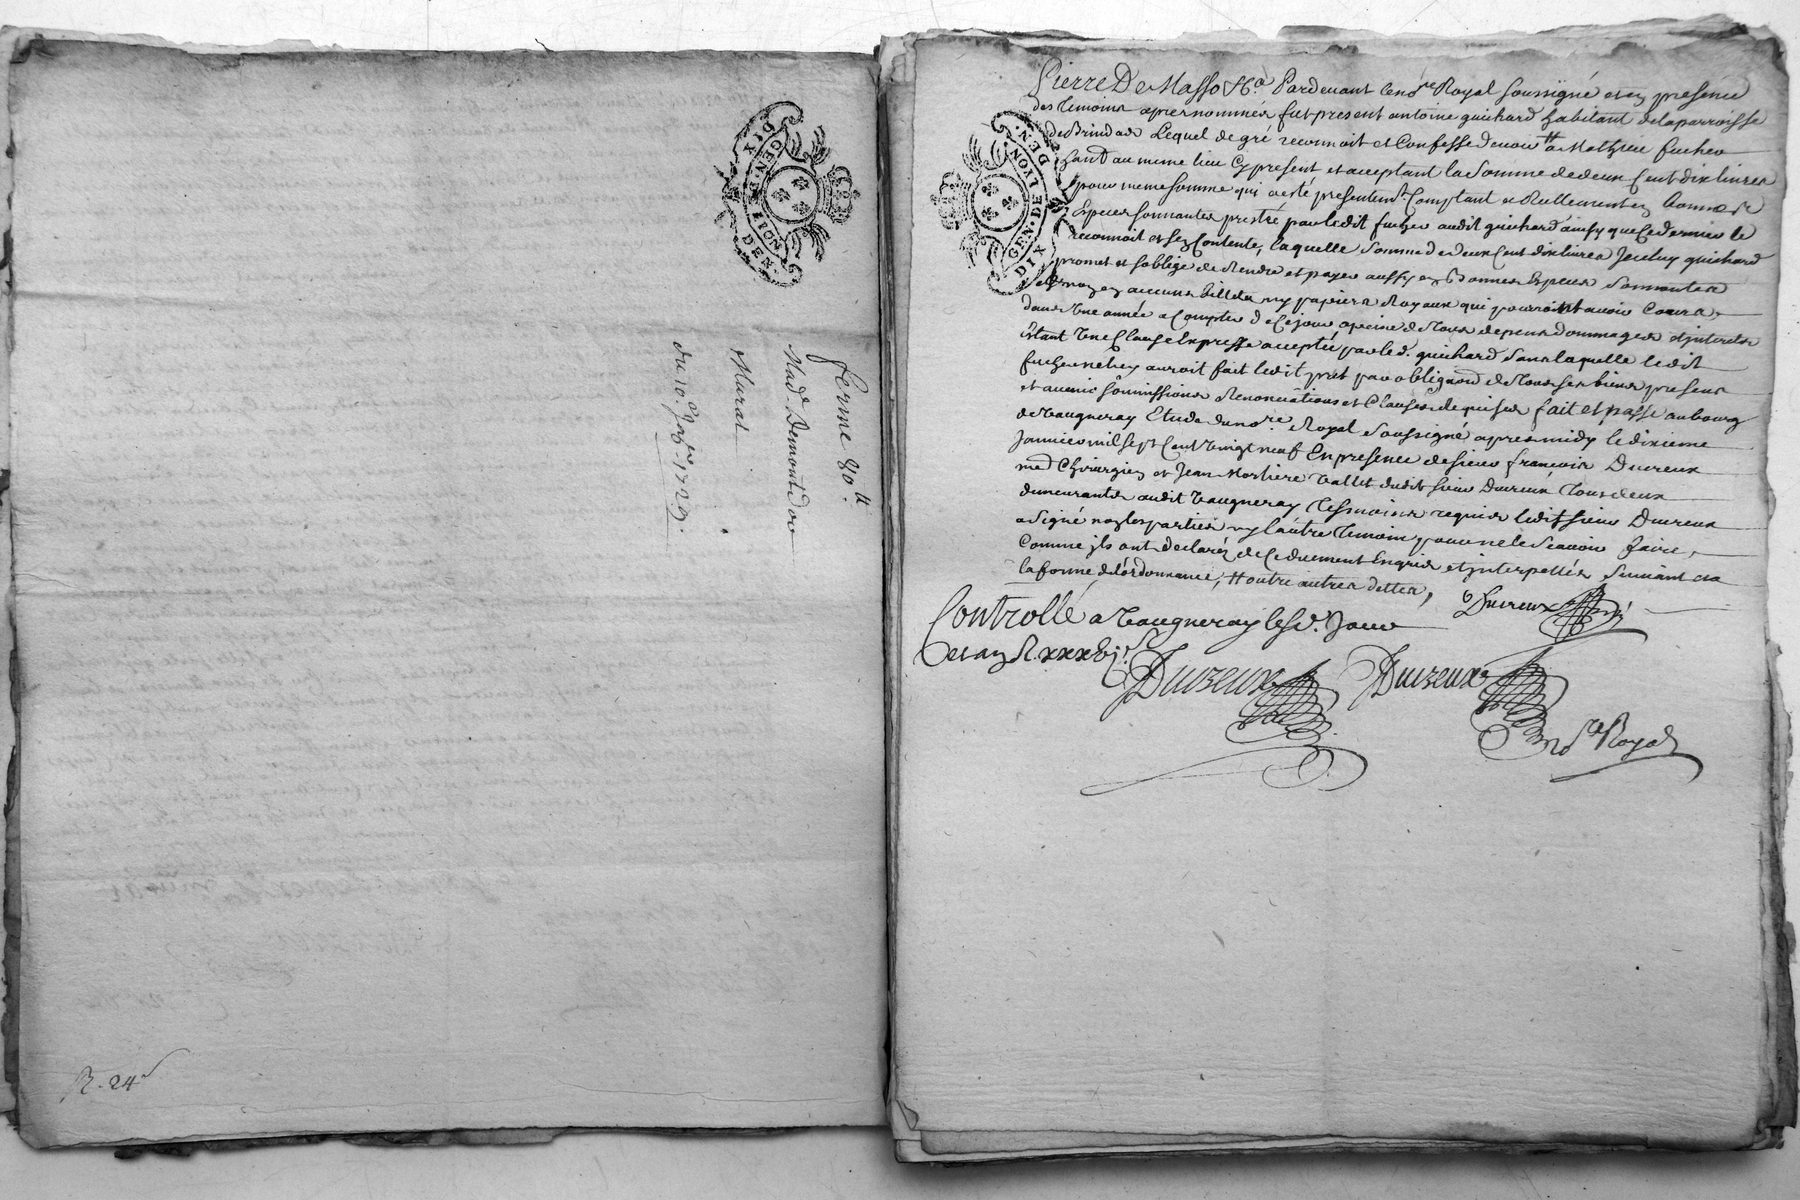 GEN. DE LION
DIX DEN.
ferme 80.ᵗᵗ
Mad.ᵉ Demontdor
Murat
du 10. Janv.ᵉʳ 1729.
R. 24
GEN. DE LYON
DIX DEN.
Pierre De Masso &.ª Pardevant le no.ʳᵉ Royal soussigné et en presence
des temoins apres nommés fut present antoine guichard habitant de la parroisse
de Brindas Lequel de gré reconnoit et Confesse devoir ## a Mathieu furher
hant au meme lieu Cy present et acceptant la Somme de deux Cent dix livres
pour meme somme qui a esté presentem.ᵗ Comptant et Reellement en bonnes
Especes sonnantes presté par ledit furher audit guichard ainsy que ce dernier le
reconnoit et sen Contente, laquelle Somme de deux Cent dix livres Jceluy guichard
promet et soblige de Rendre et payer aussy en Bonnes Especes Sonnantes
et non en aucuns billets ny papiers Royaux qui pourroint avoir Cours,
dans Une année a Compter de Ce jour a peine de tous depens dommages et jnterets
Estant Une Clause Expresse acceptée par led. guichard Sans laquelle ledit
furher auroit fait ledit prest par obligaon de tous ses biens presens
et avenir Soumissions Renonciations et Clauses de qui sur fait et passé au bourg
de Vaugneray Etude du no.ʳᵉ Royal Soussigné apres midy le dixieme
Janvier mil Sept Cent Vingt neuf En presence de sieur françois Ducreux
me Chirurgien et Jean Mortiere Vallet dudit sieur Ducreux tous deux
demeurants audit Vaugneray tesmoins requis ledit sieur Ducreux
a Signé non les parties ny l'autre temoin pour ne le Scavoir faire,
Comme jls ont declarés de Ce duement Enquis et jnterpellés Suivant
la forme de l'ordonnance, ## outre autres dettes,
Ducreux
Controllé a Vaugneray lesd. Jour
et an R. xxx
Ducreux
Ducreux
no.ʳᵉ Royal